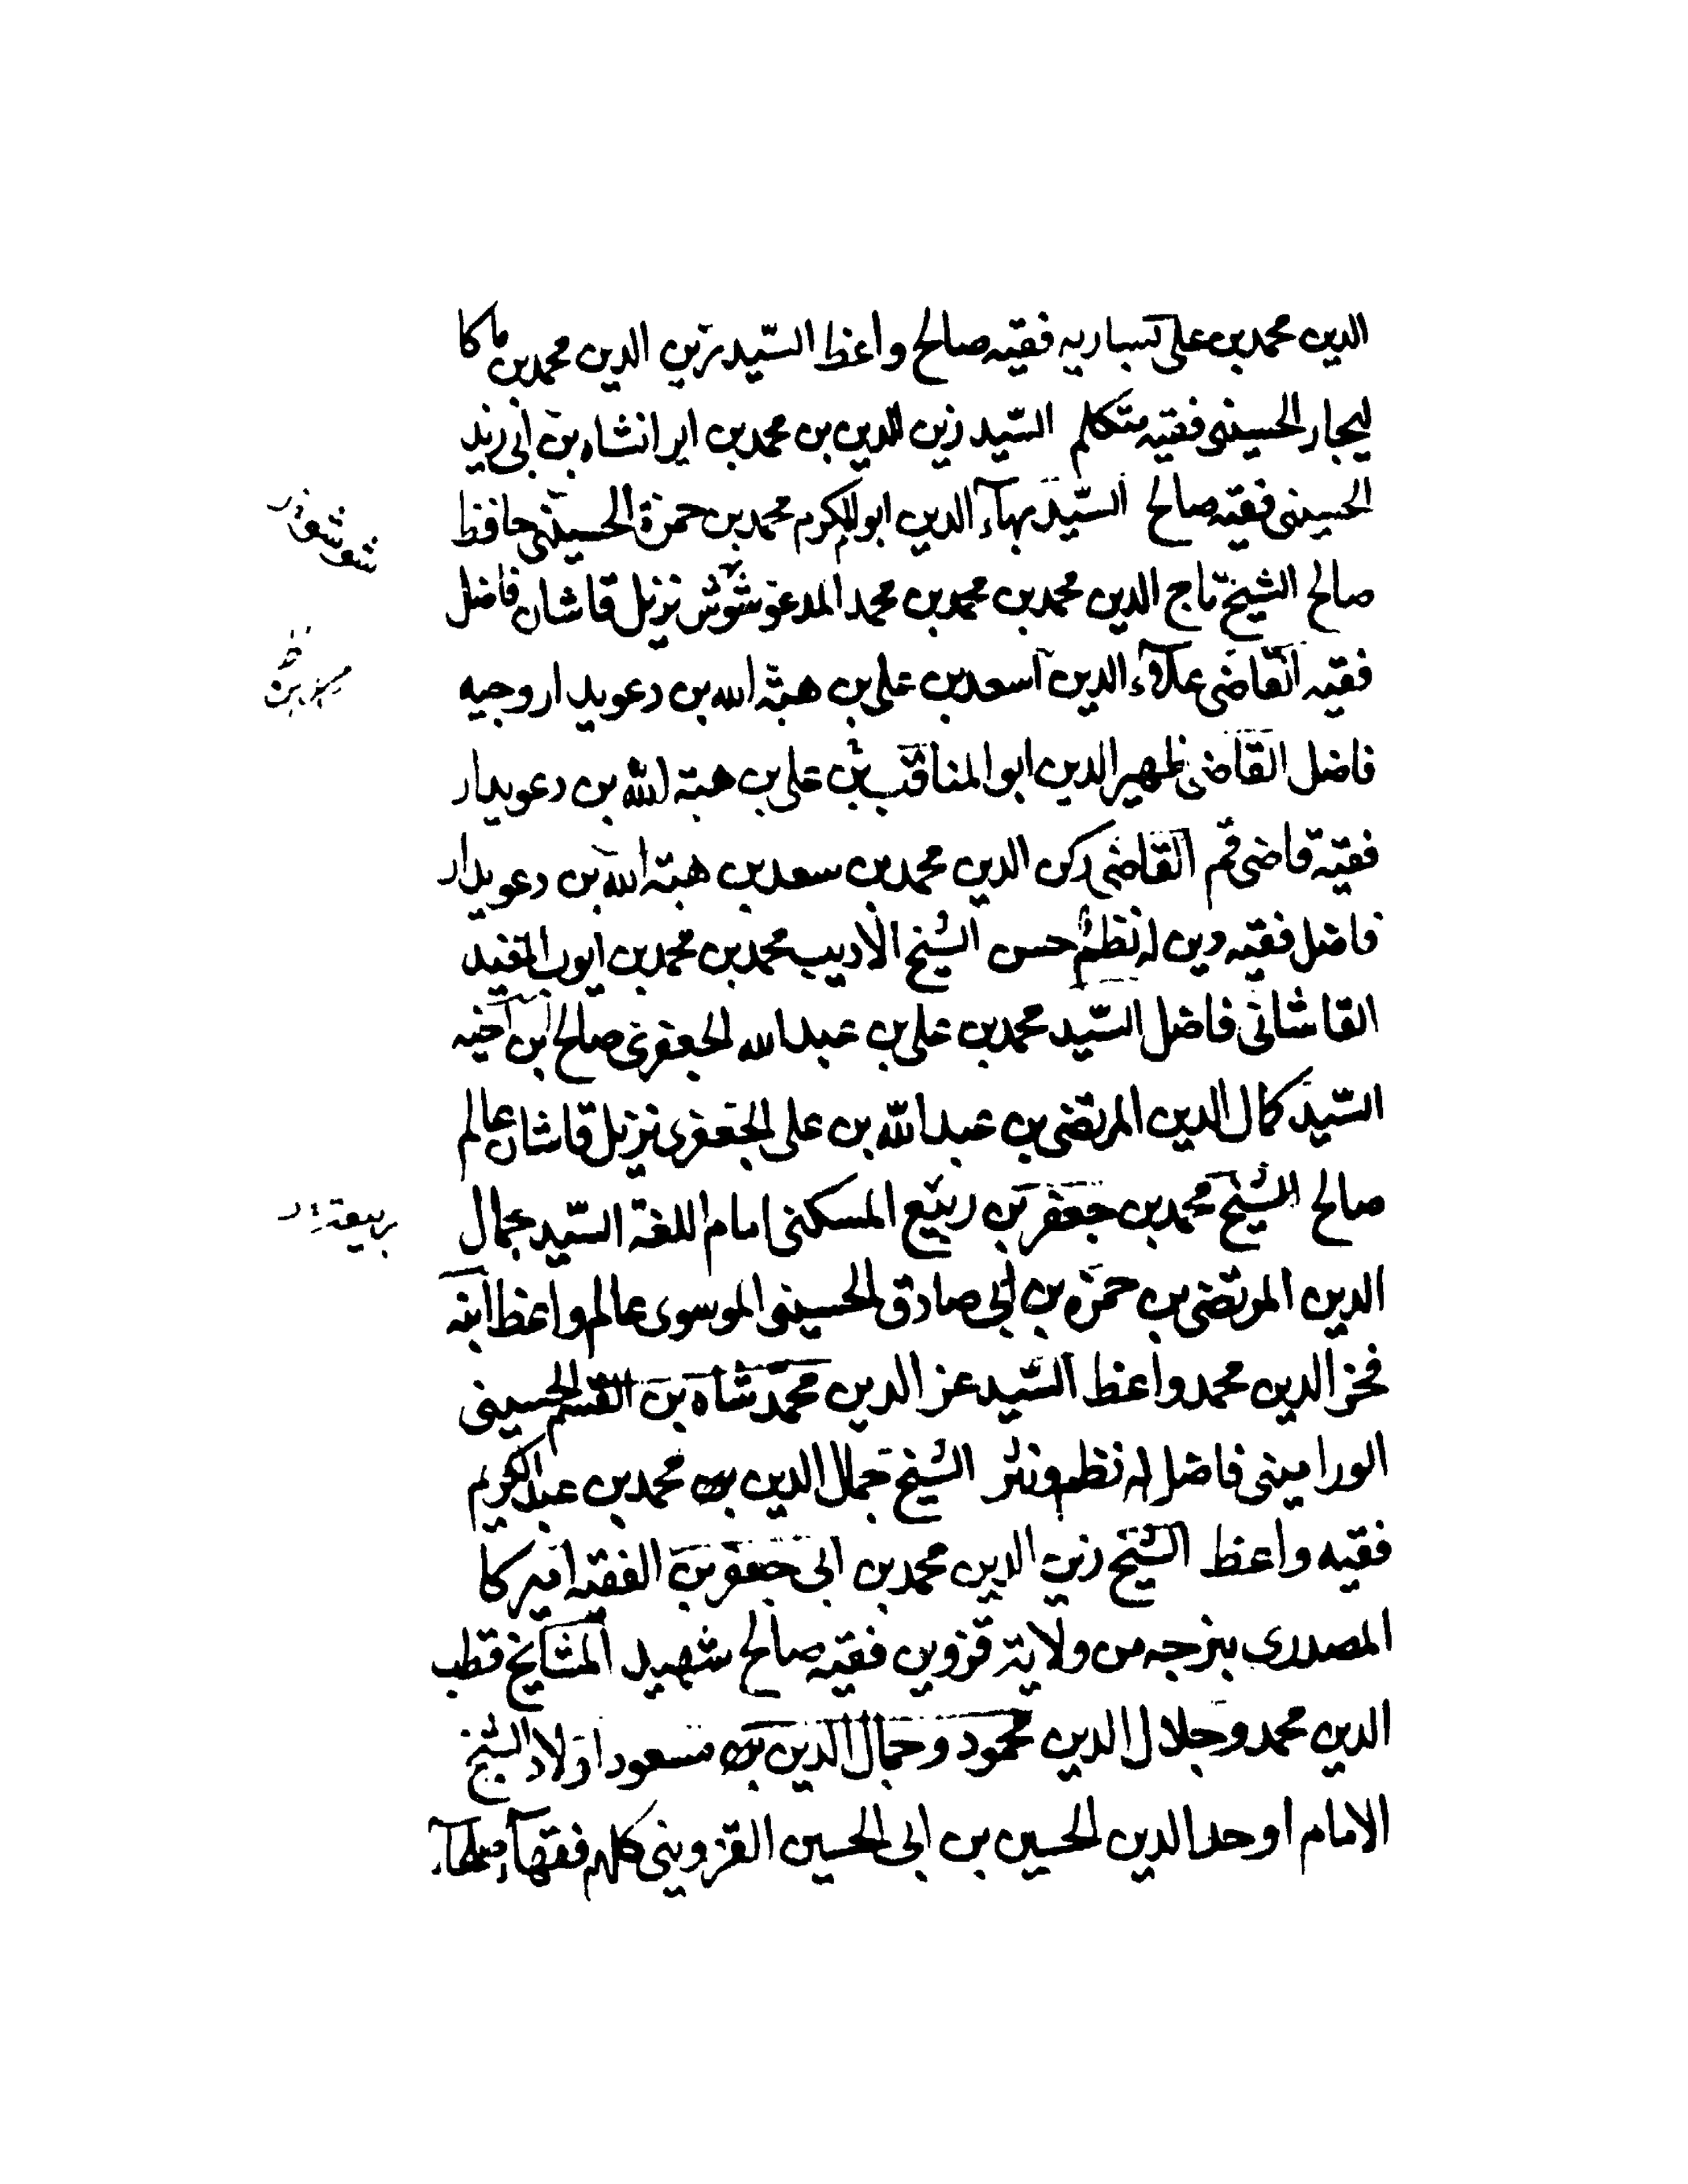 الدين محمد بن علي كتبباريه فقيه صالح واعظ السّيد زين الدين محمد بن ماكا
ليجار الحسينى فقيه متكلم السّيد زين الدين بن محمد بن ايرانشاه بن ابى زيد
الحسينى فقيه صالح السّيد بهاء الدين ابو المكرم محمد بن حمزة الحسينى حافظ
صالح الشيخ تاج الدين محمد بن محمد بن محمد المدعو شوش نزيل قاشان فاضل
فقيه القاضى علاء الدين اسعد بن على بن هبة الله بن دعويدار وجيه
فاضل القاضى ظهير الدين ابو المناقب بن على بن هبة الله بن دعويدار
فقيه قاضى قم القاضى ركن الدين محمد بن سعد بن هبة الله بن دعويدار
فاضل فقيه دين له نظم حسن الشيخ الاديب محمد بن محمد بن ايوب المفيد
القاشانى فاضل السّيد محمد بن على بن عبد الله الجعفرى صالح ابن اخيه
السّيد كمال الدين المرتضى بن عبد الله بن على الجعفرى نزيل قاشان عالم
صالح الشيخ محمد بن جعفر بن ربيع المسكنى امام اللغة السّيد جمال
الدين المرتضى بن حمزه بن ابى صادق الحسينى الموسوى عالم واعظ ابنه
فخر الدين محمد واعظ السّيد عز الدين محمد شاه بن القسم الحسينى
الورامينى فاضل له نظم ونثر الشيخ جمال الدين بن محمد بن عبد الكريم
فقيه واعظ الشيخ زين الدين محمد بن ابى جعفر بن الفقيه اميركا
المصدرى بنزجه من ولاية قزوين فقيه صالح شهيد المشايخ قطب
الدين محمد وجلال الدين محمود وجمال الدين مسعود اولاد الشيخ
الامام اوحد الدين الحسين بن ابى الحسين القزوينى كلهم فقهاء صلحاء
ربيعة